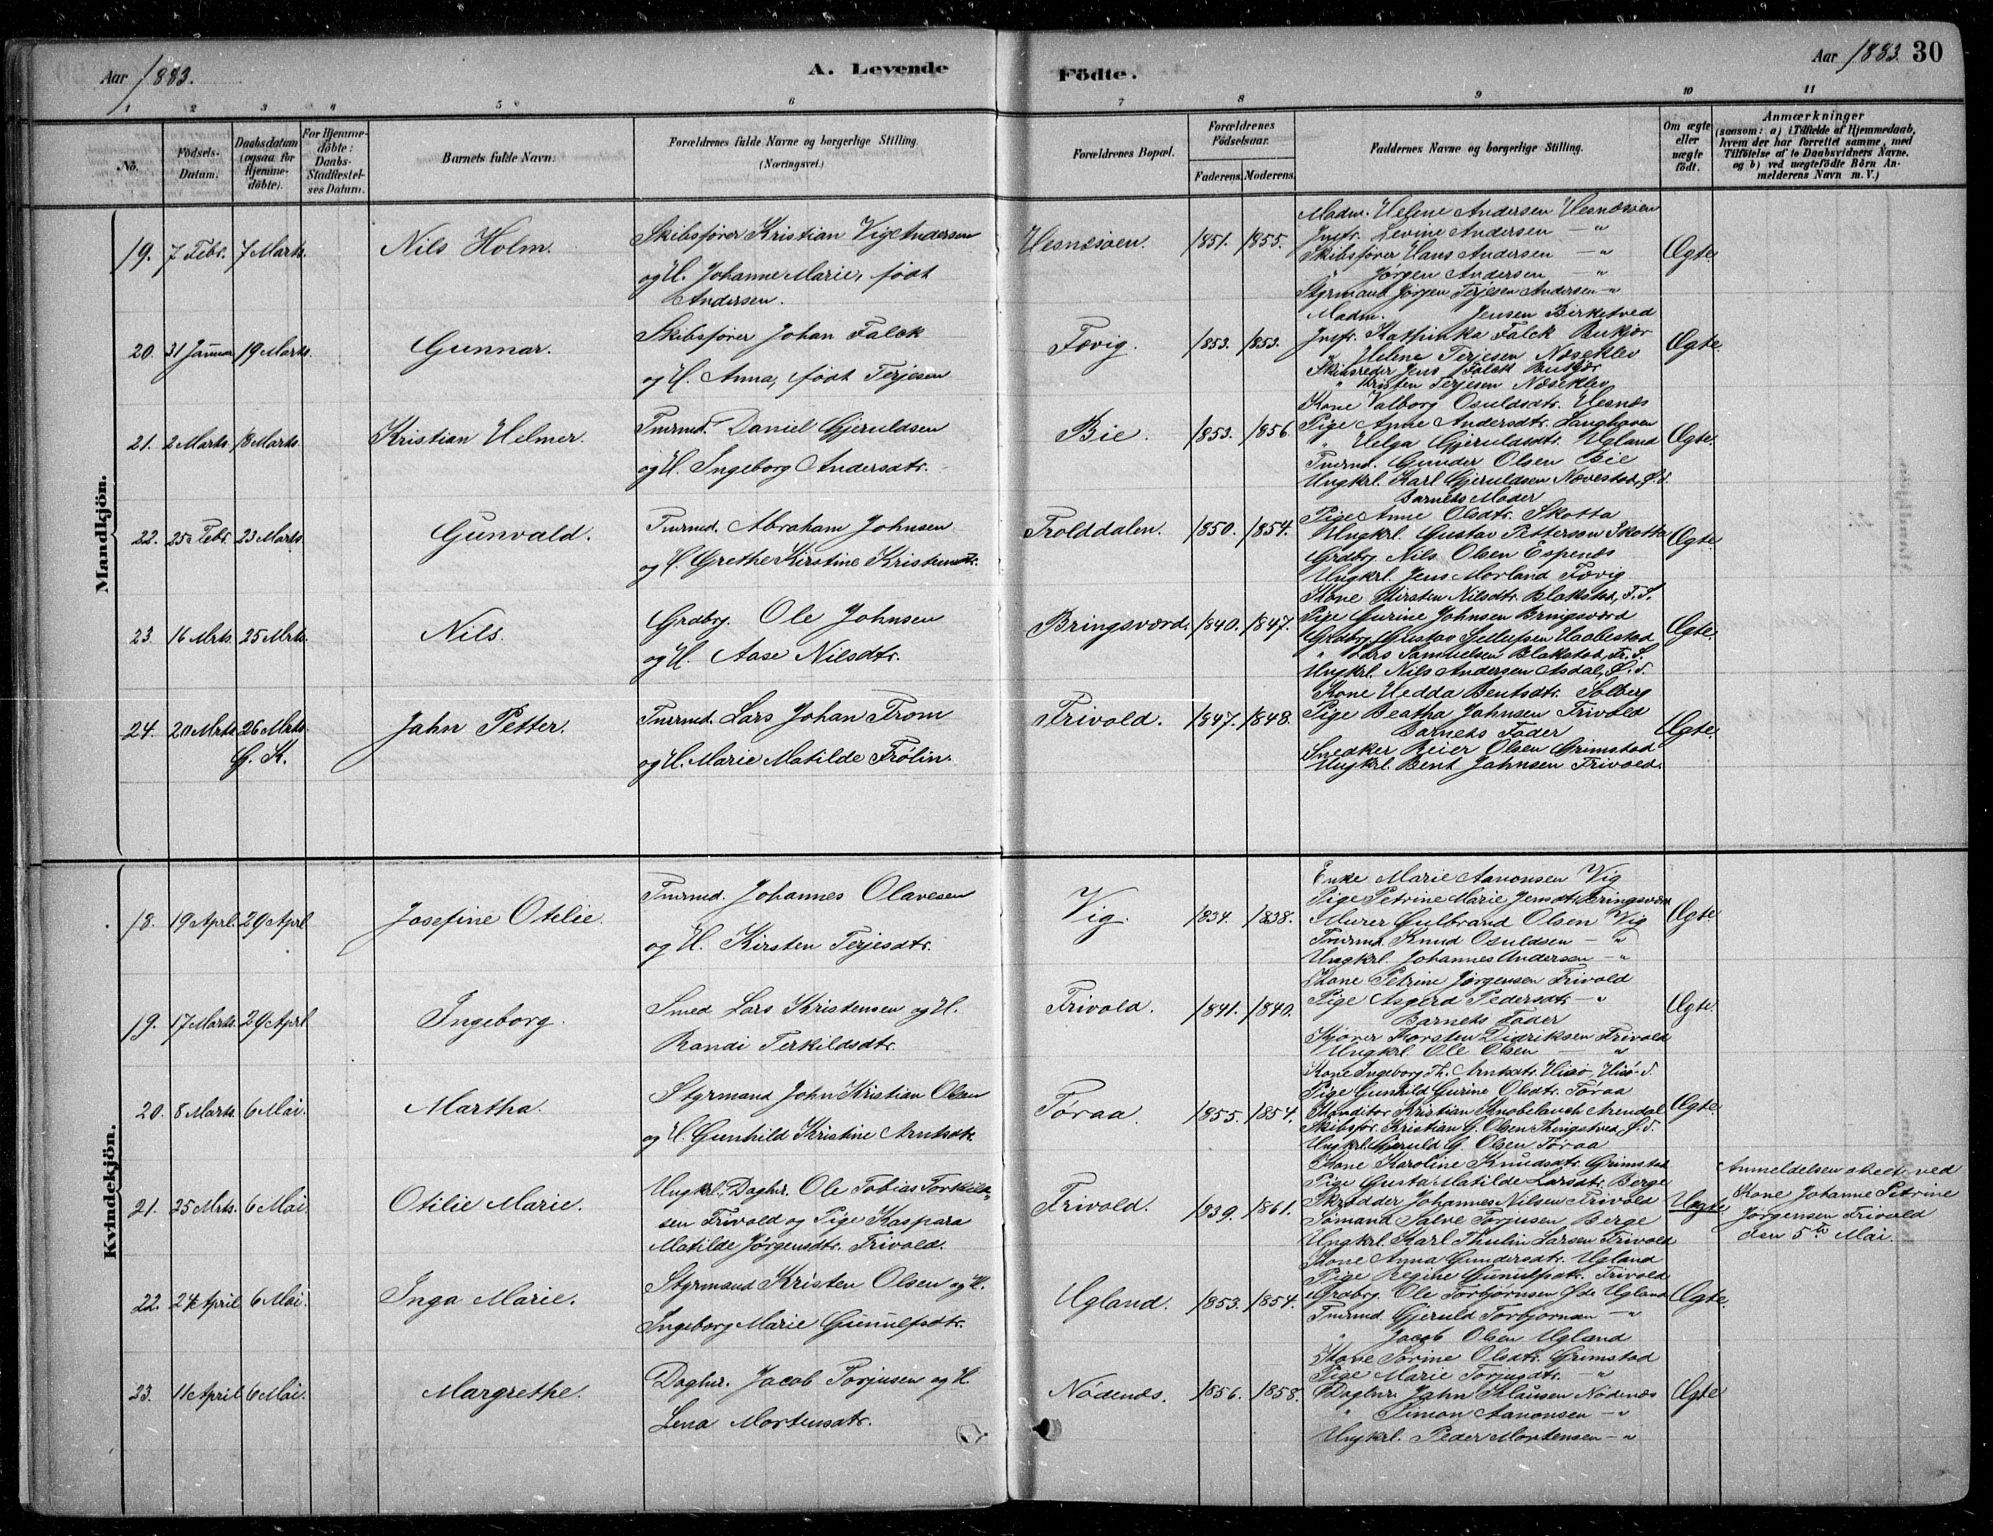 Aar 1883.
A. Levende Födte.
Aar 1883. 30
1 2 3 4 5 6 7 8 9 10 11
No.
Födsels-Datum.
Daabsdatum (ogsaa for Hjemmedöbte).
For Hjemmedöbte: Daabs-Stadfæstelses Datum.
Barnets fulde Navn.
Forældrenes fulde Navne og borgerlige Stilling. (Næringsvei.)
Forældrenes Bopæl.
Forældrenes Födselsaar.
Faderens. Moderens.
Faddernes Navne og borgerlige Stilling.
Om ægte eller uægte födt.
Anmærkninger
(saasom: a) i Tilfælde af Hjemmedaab, hvem der har forrettet samme, med Tilföielse af to Daabsvidners Navne, og b) ved uægtefödte Börn Anmelderens Navn m. V.)
Mandkjön.
19. 7 Febr. 7 Marts. Nils Holm. Skibsfører Kristian Vige Andersen
og H. Johanne Marie, født
Andersen.
Hesnæsøen. 1851. 1855.
Madm. Helene Andersen Hesnæsøen
Jnfr. Levine Andersen — "
Skibsfører Hans Andersen — "
" Jørgen Andersen — "
Styrmand Jørgen Terjesen Andersen - "
Ægte.
20. 31 Januar 19 Marts. Gunnar. Skibsfører Johan Falck
og H. Anna, født Terjesen
Fævig. 1853. 1853.
Madm. Jensen Birketved
Jnfr. Kathinka Falck Bukjær
" Helene Terjesen Næseklev
Skibsreder Jens Falck Bukjær
" Kristen Terjesen Næseklev
Ægte.
21. 2 Marts 18 Marts. Kristian Helmer. Tmrmd. Daniel Gjeruldsen
og H. Ingeborg Andersdtr.
Bie. 1853. 1856.
Kone Valborg Osuldsdtr. Hesnæs
Pige Anne Andersdtr. Langhoven
" Helga Gjeruldsdtr. Ugland
Tmrmd. Gunder Olsen Bie
Ungkrl. Karl Gjeruldsen Nævestad, Ø. S.
Ægte.
22. 25 Febr. 23 Marts Gunvald. Tmrmd. Abraham Johnsen
og H. Grethe Kirstine Kristensdtr.
Trolddalen. 1850. 1854.
Barnets Moder
Pige Anne Olsdtr. Skotta
Ungkrl. Gustav Pettersen Skotta
Grdbrg. Nils Olsen Espenæs
Ungkrl. Jens Morland Fævig
Ægte.
23. 16 Mrts. 25 Marts. Nils. Grdbrg. Ole Johnsen
og H. Aase Nilsdtr.
Bringsværd. 1840. 1847.
Kone Kirsten Nilsdtr. Blakstad, F. S.
Pige Gurine Johnsen Bringsværd
Grdbrg. Gustav Sjellufsen Haabestad
" Lars Samuelsen Blakstad, Fr. S.
Ungkrl. Nils Andersen Asdal, Ø. S.
Ægte.
24. 20 Mrts. 26 Mrts.
G. K.
Jahn Petter. Tmrmd. Lars Johan From
og H. Marie Matilde Frölin.
Frivold. 1847. 1848.
Kone Hedda Bentsdtr. Solberg
Pige Beatha Jahnsen Frivold
Barnets Fader
Snedker Reier Olsen Grimstad
Ungkrl. Bent Jahnsen Frivold.
Ægte.
Kvindekjön.
18. 19 April. 29 April Josefine Otelie. Tmrmd. Johannes Olavesen
og H. Kirsten Terjesdtr.
Vig. 1834. 1838.
Enke Marie Aanonsen Vig
Pige Petrine Marie Jensdtr. Bringsværd
Murer Gulbrand Olsen Vig
Tmrmd. Knud Osuldsen — "
Ungkrl. Johannes Andersen — "
Ægte
19. 17 Marts. 29 April Ingeborg. Smed Lars Kristensen og H.
Randi Terkildsdtr.
Frivold. 1841. 1840.
Kone Petrine Jørgensen Frivold
Pige Asgerd Pedersdtr. — "
Barnets Fader
Kjører Torsten Didriksen Frivold
Ungkrl. Ole Olsen — "
Ægte.
20. 8 Marts. 6 Mai. Martha. Styrmand John Kristian Olsen
og H. Gunhild Kristine Arntsdtr.
Føraa. 1855. 1854.
Kone Ingeborg Th. Arntsdtr. Hisø, Hisø S.
Pige Gunhild Gurine Olsdtr. Føraa
Konditor Kristian Knobelauch Arendal
Skibsfør. Kristian G. Olsen Thingstved, Ø. S.
Ungkrl. Gjeruld G. Olsen Føraa
Ægte.
21. 25 Mrts. 6 Mai. Otilie Marie. Ungkrl. Daglnr. Ole Tobias Torkild-
sen Frivold og Pige Kaspara
Matilde Jørgensdtr. Frivold.
Frivold. 1839. 1861.
Kone Karoline Knudsdtr. Grimstad
Pige Gusta Matilde Larsdtr. Berge
Skrædder Johannes Nilsen Frivold
Sømand Salve Torjusen Berge
Ungkrl. Karl Thulin Larsen Frivold
Uægte.
Anmeldelsen skeet ved
Kone Johanne Petrine
Jørgensen Frivold
den 5te Mai.
22. 24 April 6 Mai. Inga Marie. Styrmand Kristen Olsen og H.
Ingeborg Marie Gunulfsdtr.
Ugland. 1853. 1854.
Kone Anna Gundersdtr. Ugland
Pige Regine Gunulfsdtr. Frivold
Grdbrg. Ole Torbjørnsen Øde Ugland
Tmrmd. Gjeruld Torbjørnsen — "
" Jacob Olsen Ugland
Ægte.
23. 11 April 6 Mai. Margrethe. Daglnr. Jacob Torjusen og H.
Lena Mortensdtr.
Nødenæs. 1856. 1858.
Kone Torine Olsdtr. Grimstad
Pige Marie Torjusdtr. — "
Daglnr. Jahn Klausen Nødenæs
" Simon Aanonsen — "
Ungkrl. Peder Mortensen — "
Ægte